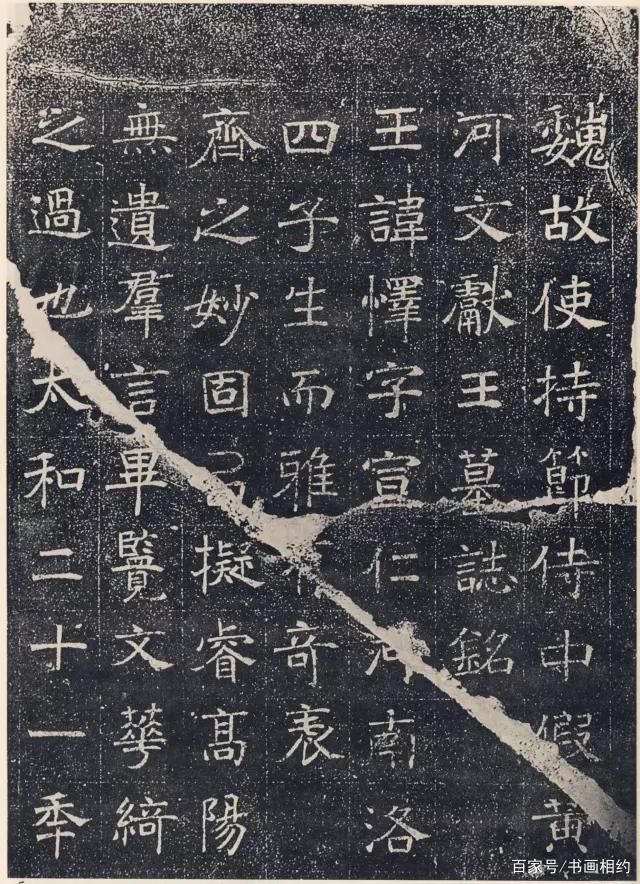 魏故使持節侍中假黄
河文獻王墓誌銘
王諱懌字宣仁河南洛
四子生而雅有奇表
齊之妙固㠯擬睿髙陽
無遺羣言畢覽文華綺
之過也太和二十一秊
百家号/书画相约